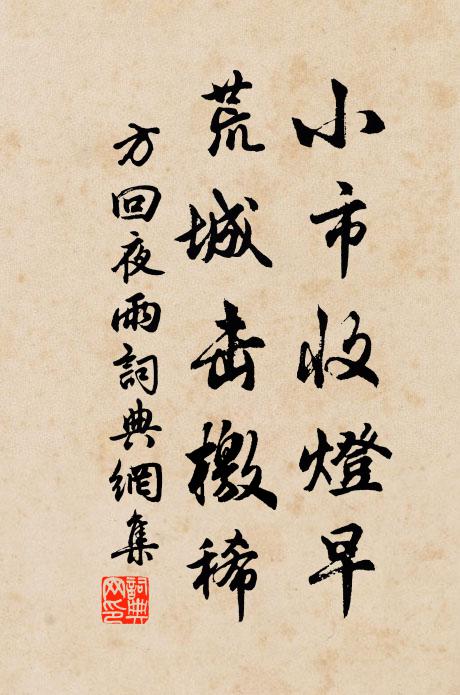 小市收燈早
荒城击檄稀
方回夜雨詞典網集
詞典网印